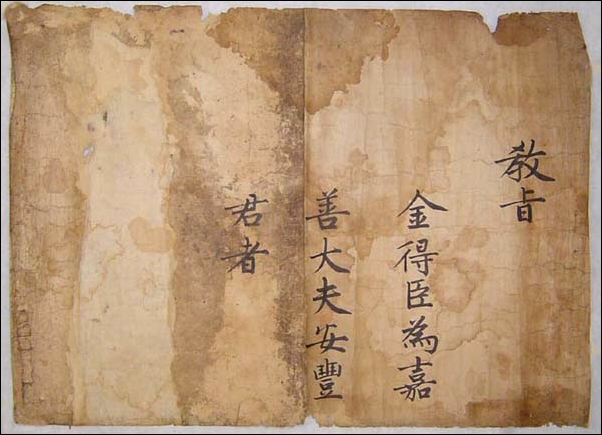 敎旨
金得臣為嘉
善大夫安豐
君者